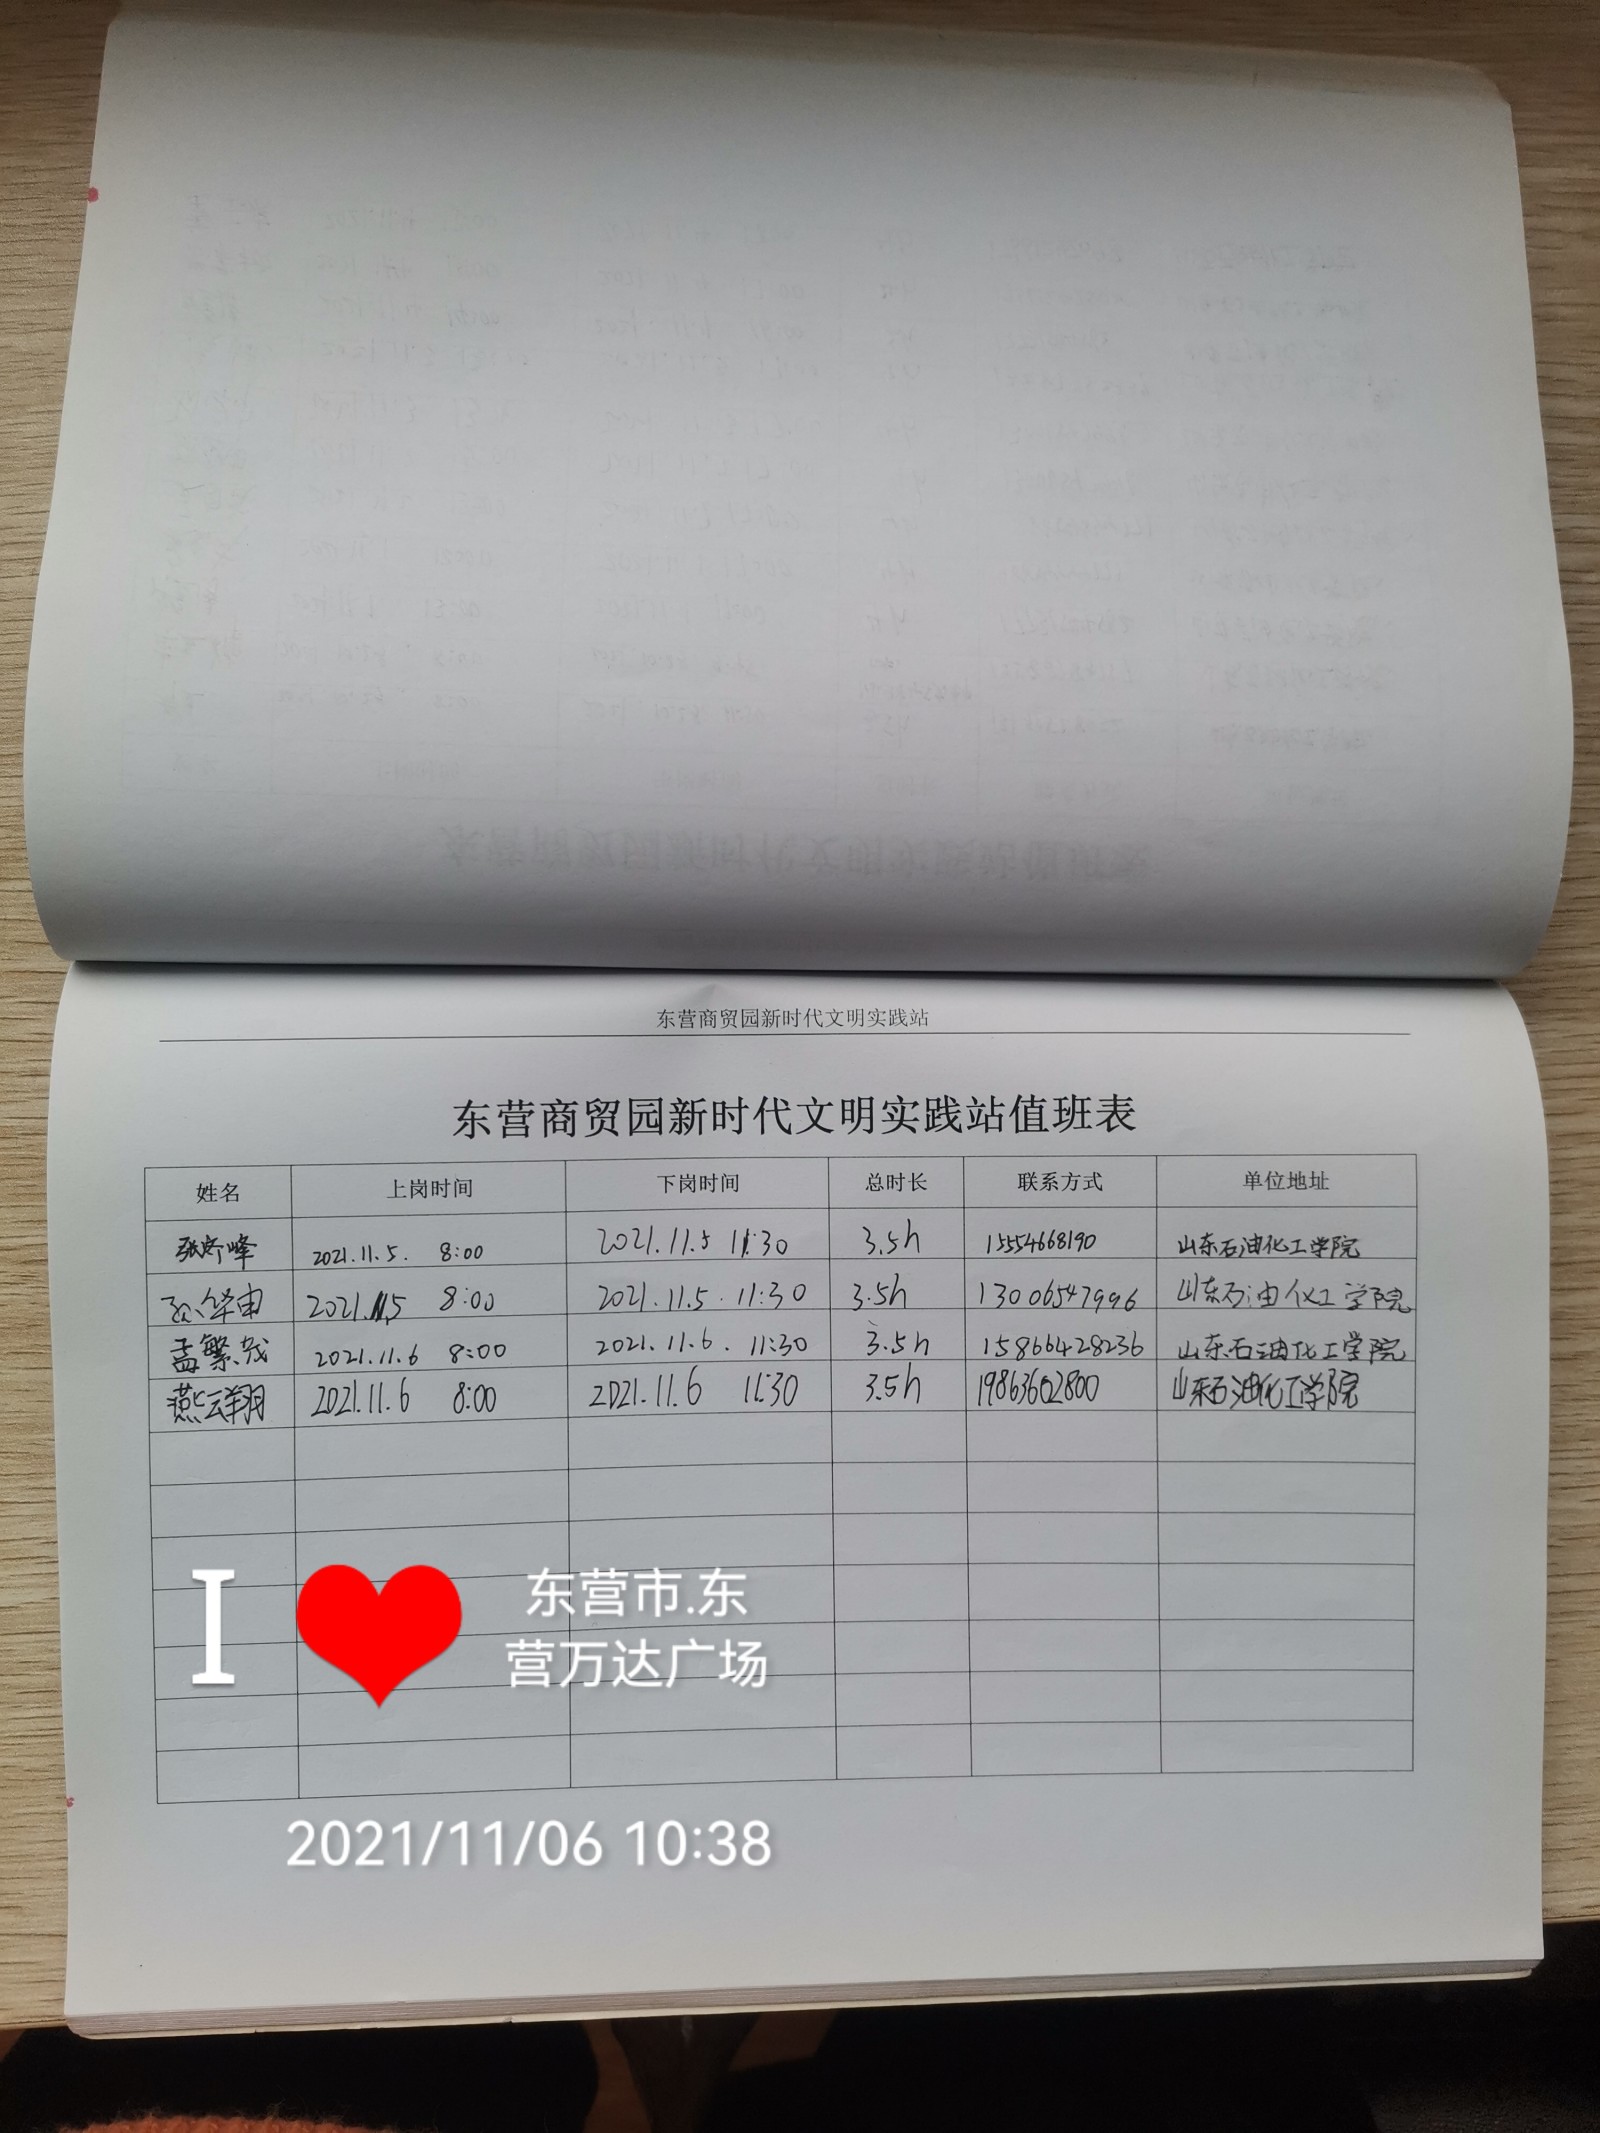 东营商贸园新时代文明实践站
东营商贸园新时代文明实践站值班表
姓名 上岗时间 下岗时间 总时长 联系方式 单位地址
张峰 2021.11.5. 8:00 2021.11.5 11:30 3.5h 15554668190 山东石油化工学院
2021.11.5 8:00 2021.11.5. 11:30 3.5h 13006547996 山东石油化工学院
孟繁茂 2021.11.6 8:00 2021.11.6. 11:30 3.5h 15866428236 山东石油化工学院
燕云翔 2021.11.6 8:00 2021.11.6 11:30 3.5h 19863602800 山东石油化工学院
I 东营市.东
营万达广场
2021/11/06 10:38